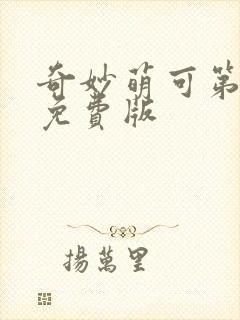 奇妙萌可第
免費版
揚萬里